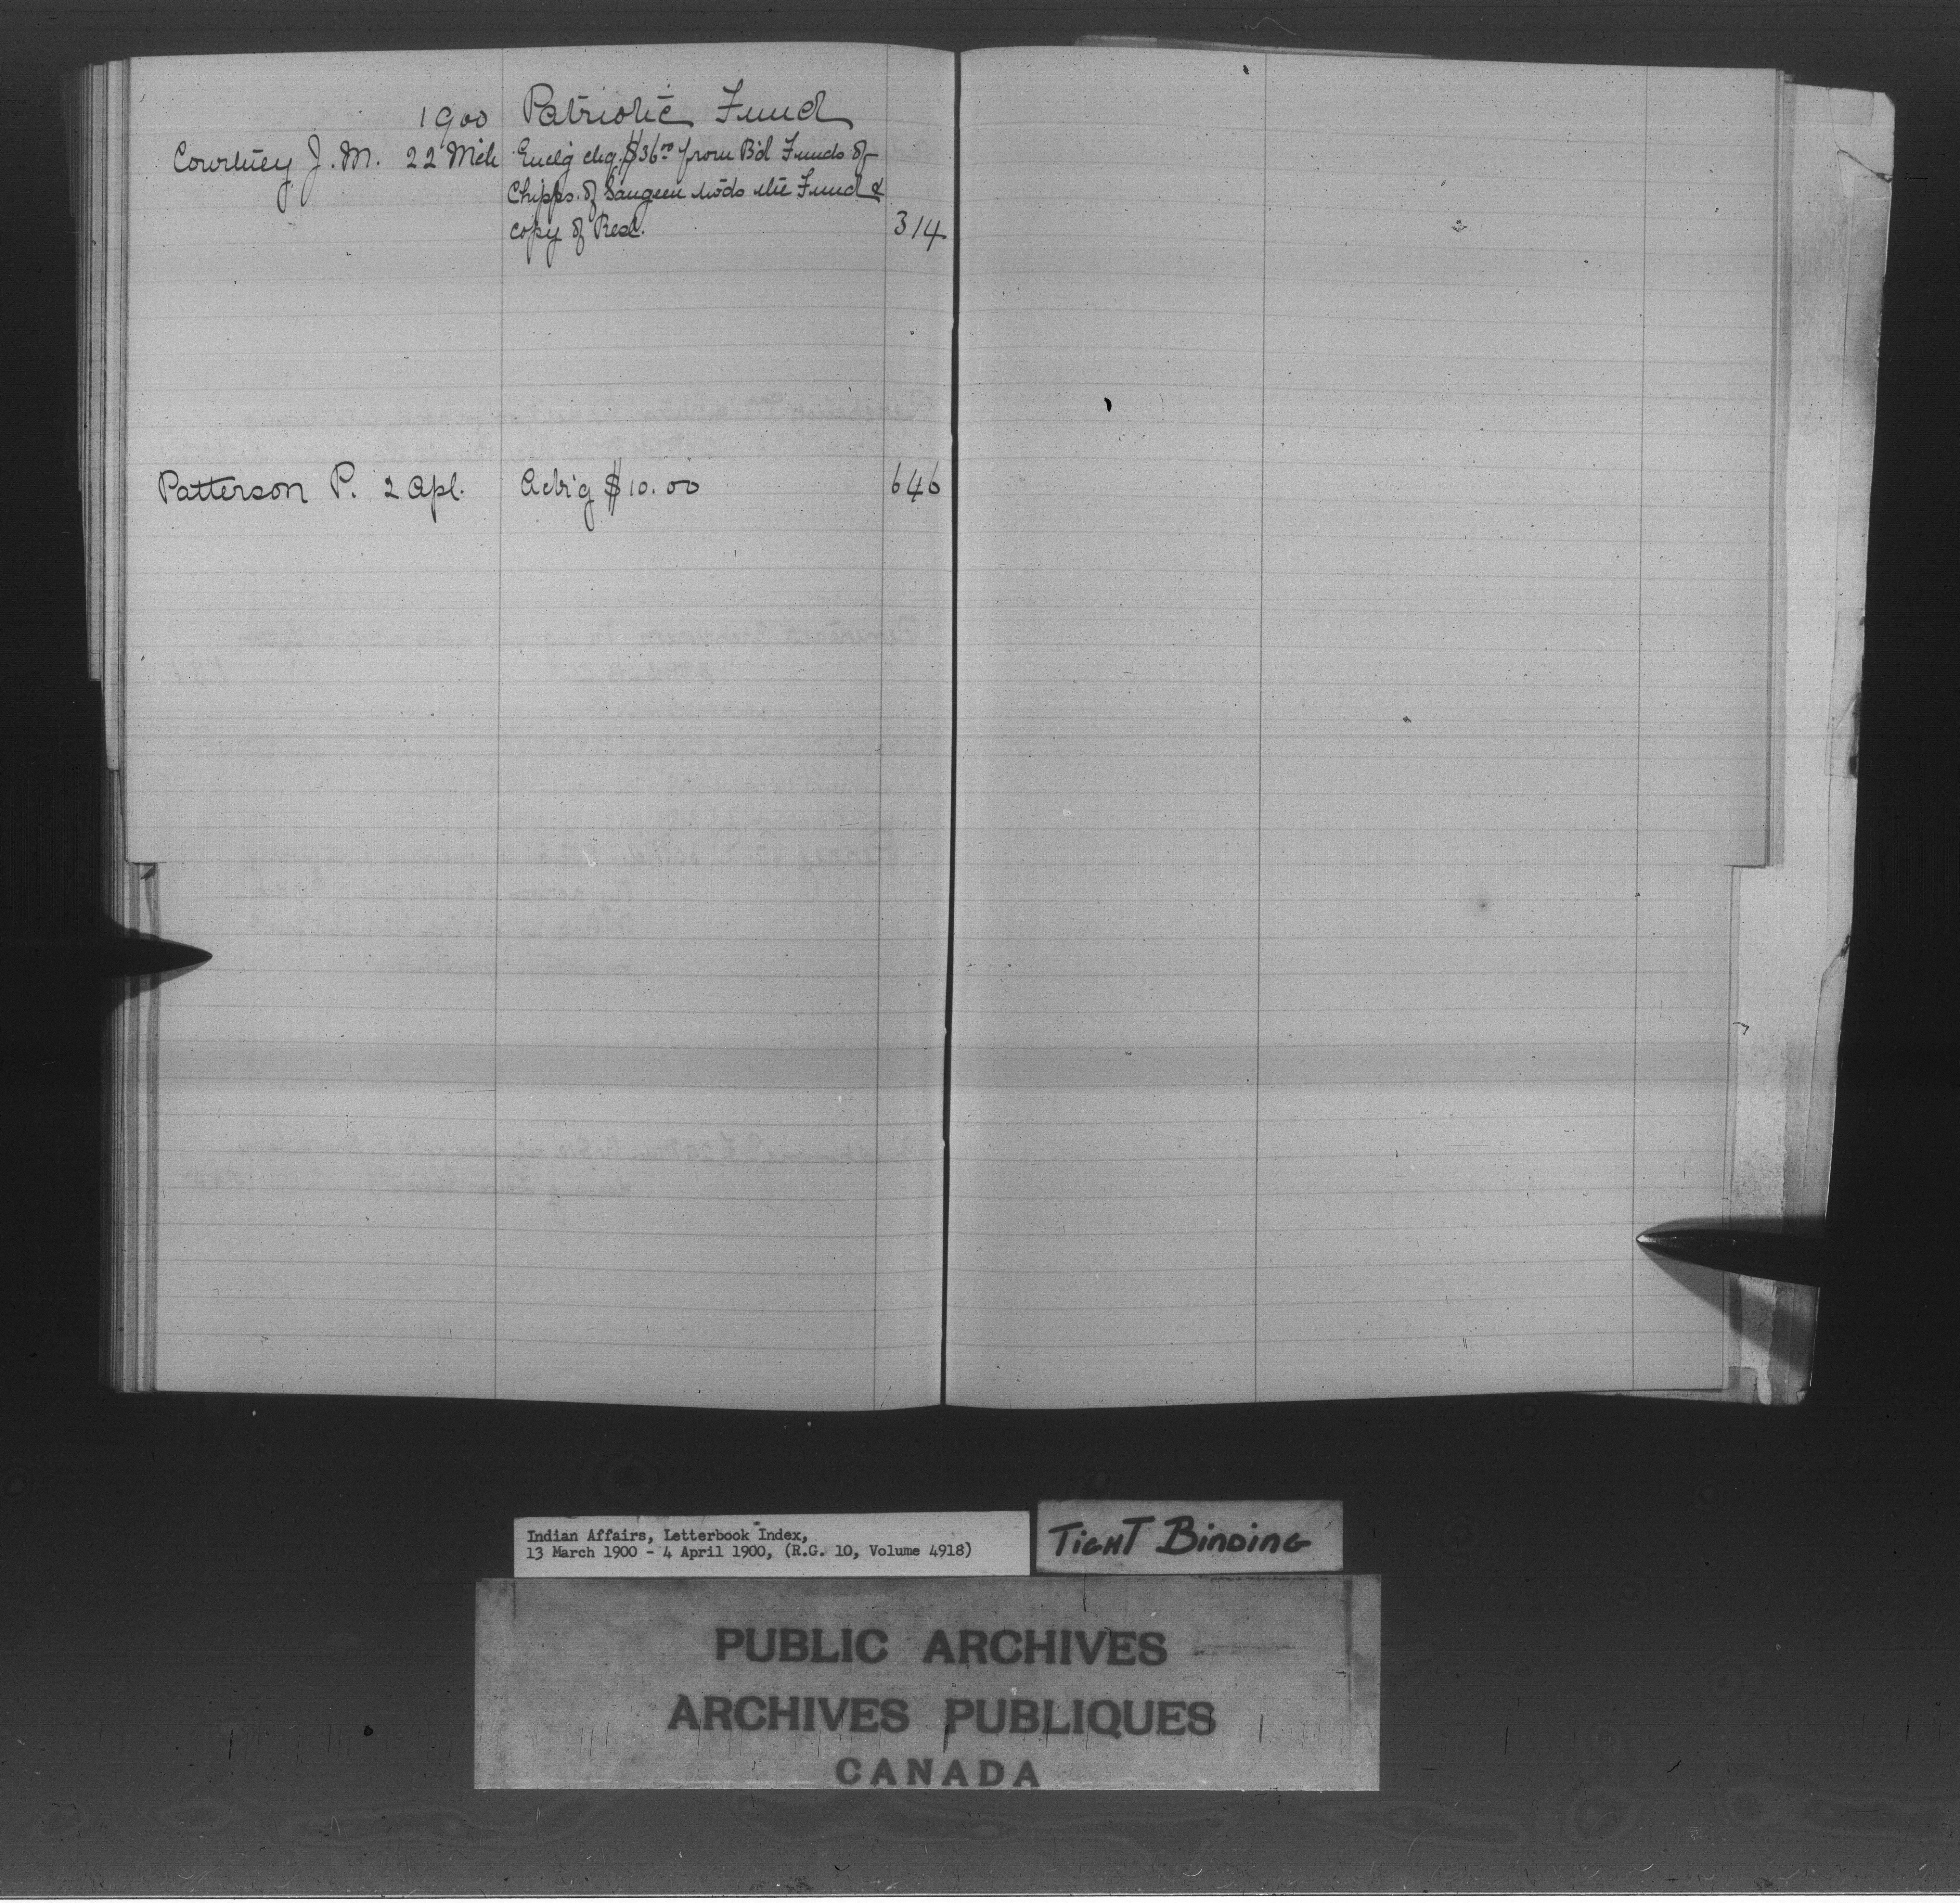 1900 Patriotic Fund
Courtney J. M. 22 Mch Enclg chq. $36.00 from B'd Funds of
Chipps. of Saugeen tw'ds the Fund &
copy of Resl. 314
Patterson P. 2 Apl. Ack'g $10.00 646
Indian Affairs, Letterbook Index,
13 March 1900 - 4 April 1900, (R.G. 10, Volume 4918)
TIGHT BINDING
PUBLIC ARCHIVES
ARCHIVES PUBLIQUES
CANADA